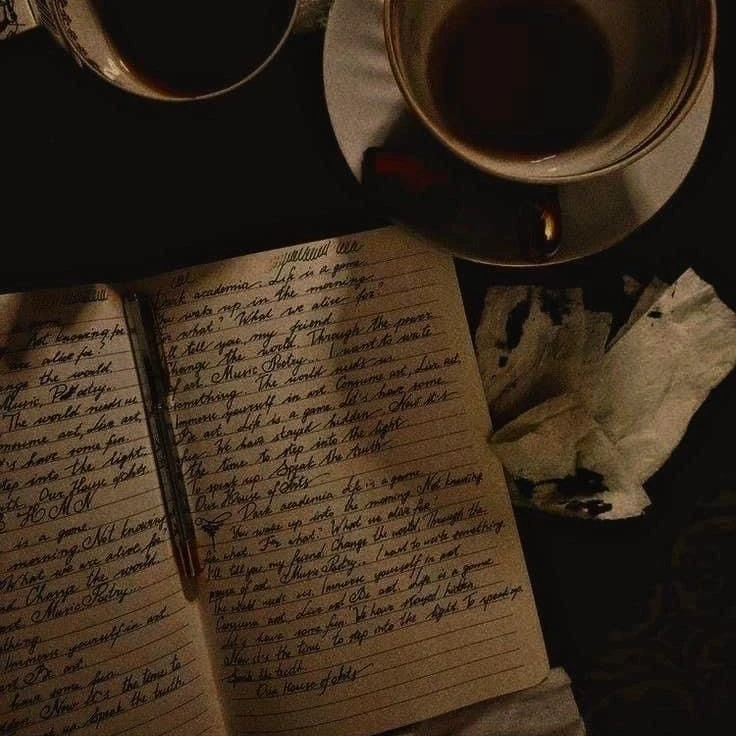 Not knowing for
are alive for?
change the world.
Music, Poetry..
The world needs us
Consume art, Live art
let's have some fun.
step into the light
truth. Our House of Arts
HMN
is a game.
morning. Not knowing
What we are alive for
Change the world.
art. Music Poetry...
Immerse yourself in art
art Be art.
have some fun.
hidden. Now it's the time to
up. Speak the truth.
Dark academia. Life is a game.
You wake up in the morning.
for what? What we alive for?
I'll tell you, my friend
Change the world. Through the power
of art. Music, Poetry... I want to write
something. The world needs us
Immerse yourself in art Consume art, Live art
Be art. Life is a game Let's have some
fun. We have stayed hidden Now it's
the time to step into the light
To speak up. Speak the truth
Our House of Arts
Dark academia Life is a game
You wake up into the morning. Not knowing
for what. For what? What we alive for?
I'll tell you, my friend Change the world. Through the
power of art. Music, Poetry... I want to write something
The world needs us. Immerse yourself in art
Consume art, Live art Be art. Life is a game
Let's have some fun. We have stayed hidden
Now it's the time to step into the light To speak up.
Speak the truth
Our House of Arts